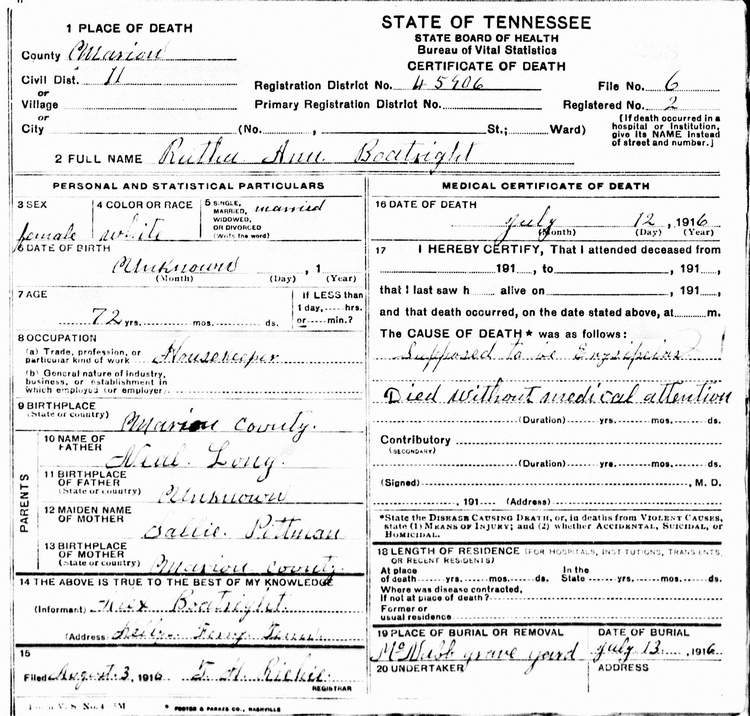 STATE OF TENNESSEE
STATE BOARD OF HEALTH
Bureau of Vital Statistics
CERTIFICATE OF DEATH
1 PLACE OF DEATH
County Marion
Civil Dist. 11
or
Village
or
City (No. , St.; Ward)
Registration District No. 45906 File No. 6
Primary Registration District No. Registered No. 2
[If death occurred in a hospital or institution, give its NAME instead of street and number.]
2 FULL NAME Ruthy Ann Boatright
PERSONAL AND STATISTICAL PARTICULARS
3 SEX
female
4 COLOR OR RACE
white
5 SINGLE, MARRIED, WIDOWED, OR DIVORCED (Write the word)
married
6 DATE OF BIRTH
Unknown , 1
(Month) (Day) (Year)
7 AGE
72 yrs. mos. ds.
If LESS than
1 day, hrs.
or min.?
8 OCCUPATION
(a) Trade, profession, or
particular kind of work Housekeeper
(b) General nature of industry,
business, or establishment in
which employed (or employer)
9 BIRTHPLACE
(State or country) Marion County.
PARENTS
10 NAME OF
FATHER Neal Long.
11 BIRTHPLACE
OF FATHER
(State or country) Unknown
12 MAIDEN NAME
OF MOTHER Sallie. Pittman
13 BIRTHPLACE
OF MOTHER
(State or country) Marion County
14 THE ABOVE IS TRUE TO THE BEST OF MY KNOWLEDGE
(Informant) Boatright.
(Address) Ferry
15
Filed August. 3, 1916 T. H. Richie
REGISTRAR
V. S. No. 4
* FOSTER & PARKES CO., NASHVILLE
MEDICAL CERTIFICATE OF DEATH
16 DATE OF DEATH
July 12, 1916
(Month) (Day) (Year)
17 I HEREBY CERTIFY, That I attended deceased from
191 , to , 191 ,
that I last saw h alive on , 191 ,
and that death occurred, on the date stated above, at m.
The CAUSE OF DEATH * was as follows:
Supposed to be
Died without medical attention
(Duration) yrs. mos. ds.
Contributory
(SECONDARY)
(Duration) yrs. mos. ds.
(Signed) , M. D.
, 191 (Address)
*State the DISEASE CAUSING DEATH, or, in deaths from VIOLENT CAUSES,
state (1) MEANS OF INJURY; and (2) whether ACCIDENTAL, SUICIDAL, or
HOMICIDAL.
18 LENGTH OF RESIDENCE (FOR HOSPITALS, INSTITUTIONS, TRANSIENTS,
OR RECENT RESIDENTS)
At place
of death yrs. mos. ds.
In the
State yrs. mos. ds.
Where was disease contracted,
If not at place of death?
Former or
usual residence
19 PLACE OF BURIAL OR REMOVAL
McNabb grave yard
DATE OF BURIAL
July 13. , 1916
20 UNDERTAKER
ADDRESS